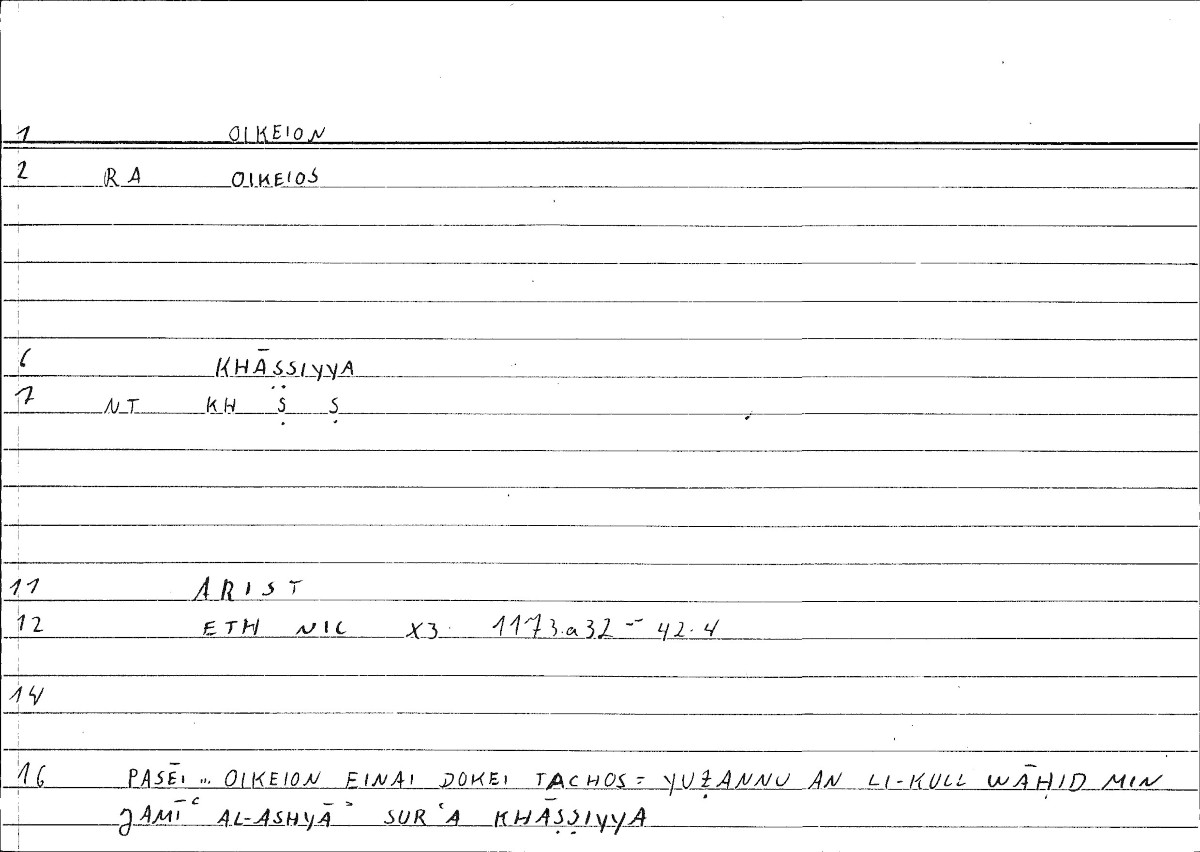 1 OIKEION
2 RA OIKEIOS
6 KHĀṢṢIYYA
7 NT KH Ṣ Ṣ
11 ARIST
12 ETH NIC X3. 1173.a32 = 42.4
14
16 PASĒI ... OIKEION EINAI DOKEI TACHOS = YUẒANNU AN LI-KULL WĀḤID MIN
JAMĪʿ AL-ASHYĀʾ SURʿA KHĀṢṢIYYA